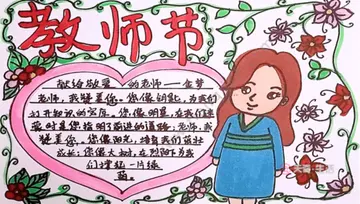 教师节
献给敬爱的老师——金梦
老师，我赞美您。您像钥匙，为我们
打开知识的宝库。您像明星，在我们迷
茫时是您指明了前进的道路；老师，我
赞美您，您像阳光，培育我们茁壮
成长；您像大树，在烈阳下为我
们撑起一片绿
荫。